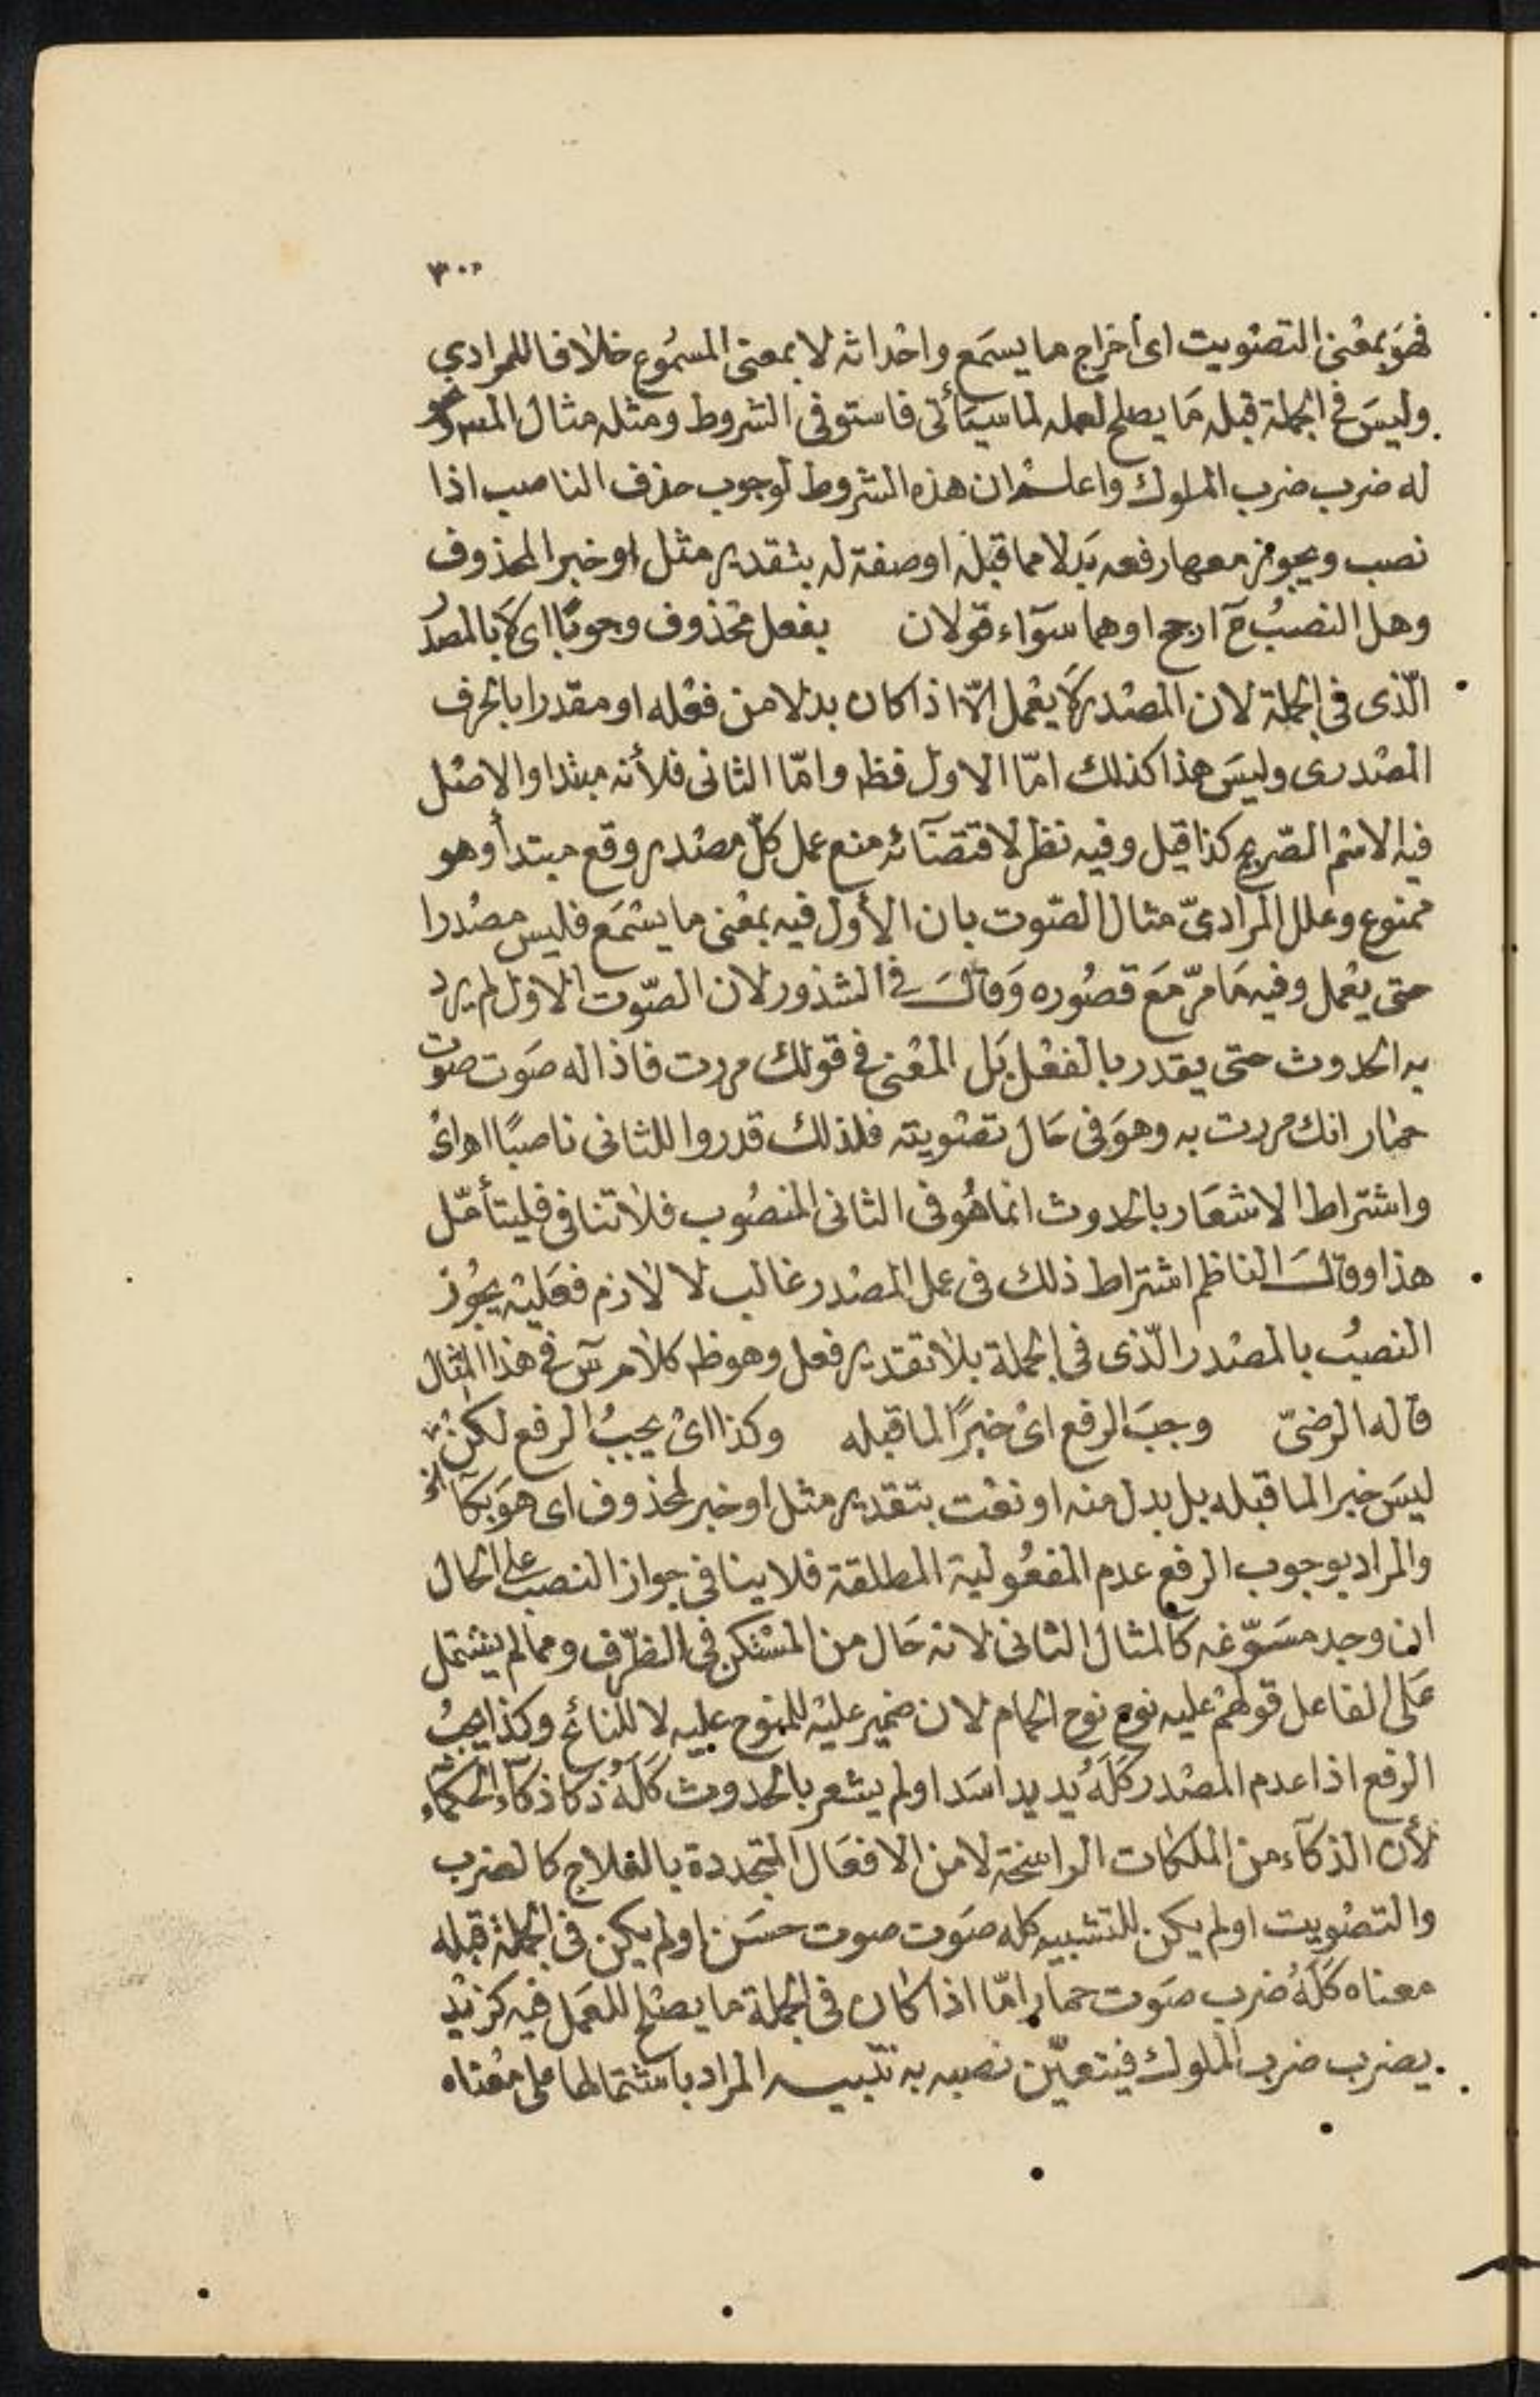 ٣٠٠
فهوَ بمعْنى التصْويت اى اخراج ما يسمَع واحْداثه لا بمعنى المسمُوع خلافا للمرادي
وليسَ فى الجملة قبله مَا يصلح لعمله لما سيَأتى فاستوفى الشروط ومثله مثال
له ضرب ضرب الملوك واعلم ان هذه الشروط لوجوب حذف الناصب اذا
نصب ويجوز معها رفعه بَدلا مما قبله او صفة له بتقدير مثل او خبر المحذوف
وهل النصبُ ح ارجح او هما سوَآء قولان بفعل محْذوف وجوبًا اى لَا بالمصدر
الّذى فى الجملة لان المصْدر لَا يعْمل الّا اذا كان بدلا من فعْله او مقدرا بالحرف
المصْدرى وليسَ هذا كذلك امّا الاول فظ وامّا الثانى فلأنه مبتدا والاصْل
فيه الاسْم الصّريح كذا قيل وفيه نظر لاقتضَآئه منع عمل كلّ مصْدر وقع مبتدأ وهو
ممنوع وعلل المراديّ مثال الصّوت بان الأول فيه بمعْنى ما يسْمَع فليس مصْدرا
حتى يعْمل وفيه مَا مرّ مَع قصُوره وَقالَ فى الشذور لان الصّوت الاول لم يرد
به الحدوث حتى يقدر بالفعْل بَل المعْنى فى قولك مررت فاذا له صَوت صوت
حمار انك مررت به وهوَ فى حَال تصْويته فلذلك قدروا للثانى ناصبًا اه اىْ
واشتراط الاشعَار بالحدوث انما هُو فى الثانى المنصُوب فلا تنافى فليتأمّل
هذا وقالَ الناظم اشتراط ذلك فى عمل المصْدر غالب لا لازم فعَليْه يجُوز
النصبُ بالمصْدر الّذى فى الجملة بلا تقدير فعل وهو ظ كلام س فى هذا المثال
قاله الرضىّ وجبَ الرفع اىْ خبرًا لما قبله وكذا اىْ يجبُ الرفع لكنْ
ليسَ خبرا لما قبله بل بدل منه او نعْت بتقدير مثل او خبر لمحذوف اى هوَ بكآ
والمراد بوجوب الرفع عدم المفعُولية المطلقة فلا ينافى جواز النصب على الحال
ان وجد مسَوّغه كالمثال الثانى لانه حَال من المسْتكن فى الظرّف ومما لم يشتمل
عَلى الفاعل قولهمْ عليه نوح نوح الحمام لان ضمير عليْه للمنوح عليه لا للنائح وكذا يجبُ
الرفع اذا عدم المصْدر كَلَهُ يد يد اسَد او لم يشعر بالحدوث كَلَهُ ذكا ذكآء الحكمآء
لأن الذكآء من الملكات الراسخة لا من الافعَال المتجددة بالعلاج كالضرب
والتصْويت او لم يكن للتشبيه كله صَوت صوت حسَن او لم يكن فى الجملة قبله
معناه كَلَهُ ضرب صَوت حمار امّا اذا كان فى الجملة ما يصْلح للعَمل فيه كزيْد
يضرب ضرب الملوك فيتعيّن نصبه به تنبيه المراد باشتمالها على معْناه